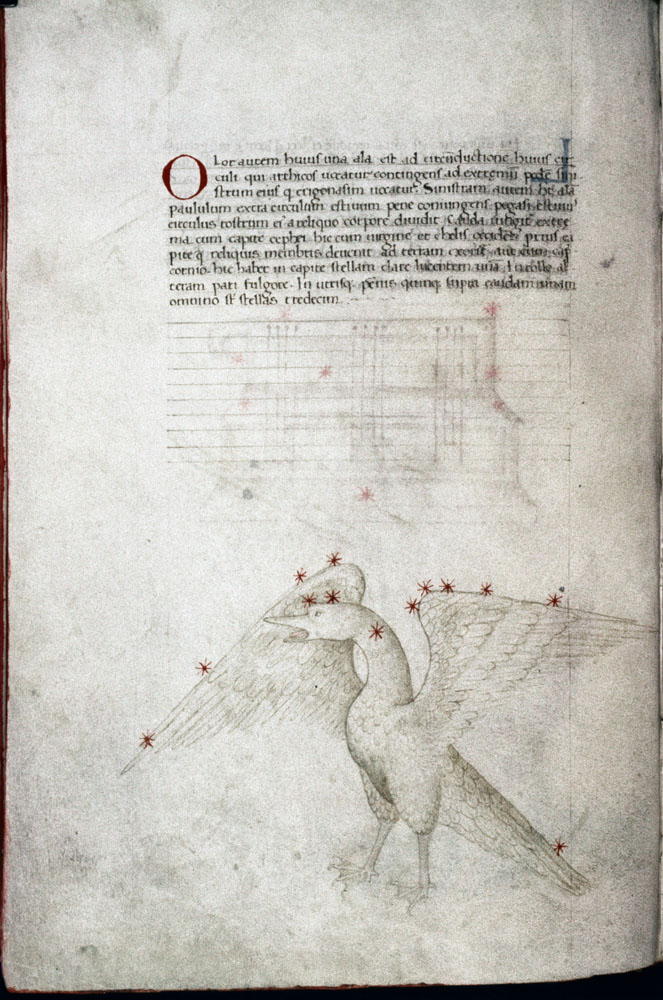 Olor autem huius una ala est ad circuductione huius cir
culi qui arthicos uocatur contingens ad extremū pedē sini
strum eius q erigonasim uocatur. Sinistram autem hēs ala
paululum extra circulum estiuum pene coniungens pegasi estiuū
circulus rostrum ei a reliquo corpore diuidit. Cauda iungit extre
ma cum capite cephei hic cum uirgine et chelis occidēs prius ca
pite q reliquis menbris deuenit ad terram exorit aut cum cap
cornio. hic habet in capite stellam clare lucentem unā. In collo al
teram pari fulgore. In utrisq penis quinq supra caudam unam
omnino st stellas tredecim.